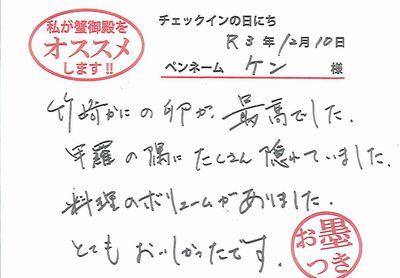 私が蟹御殿を
オススメ
します!!
チェックインの日にち
R3年12月10日
ペンネーム ケン 様
竹崎かにの卵が、最高でした。
甲羅の隅にたくさん隠れていました。
料理のボリュームがありました。
とてもおいしかったです。
お墨
つき